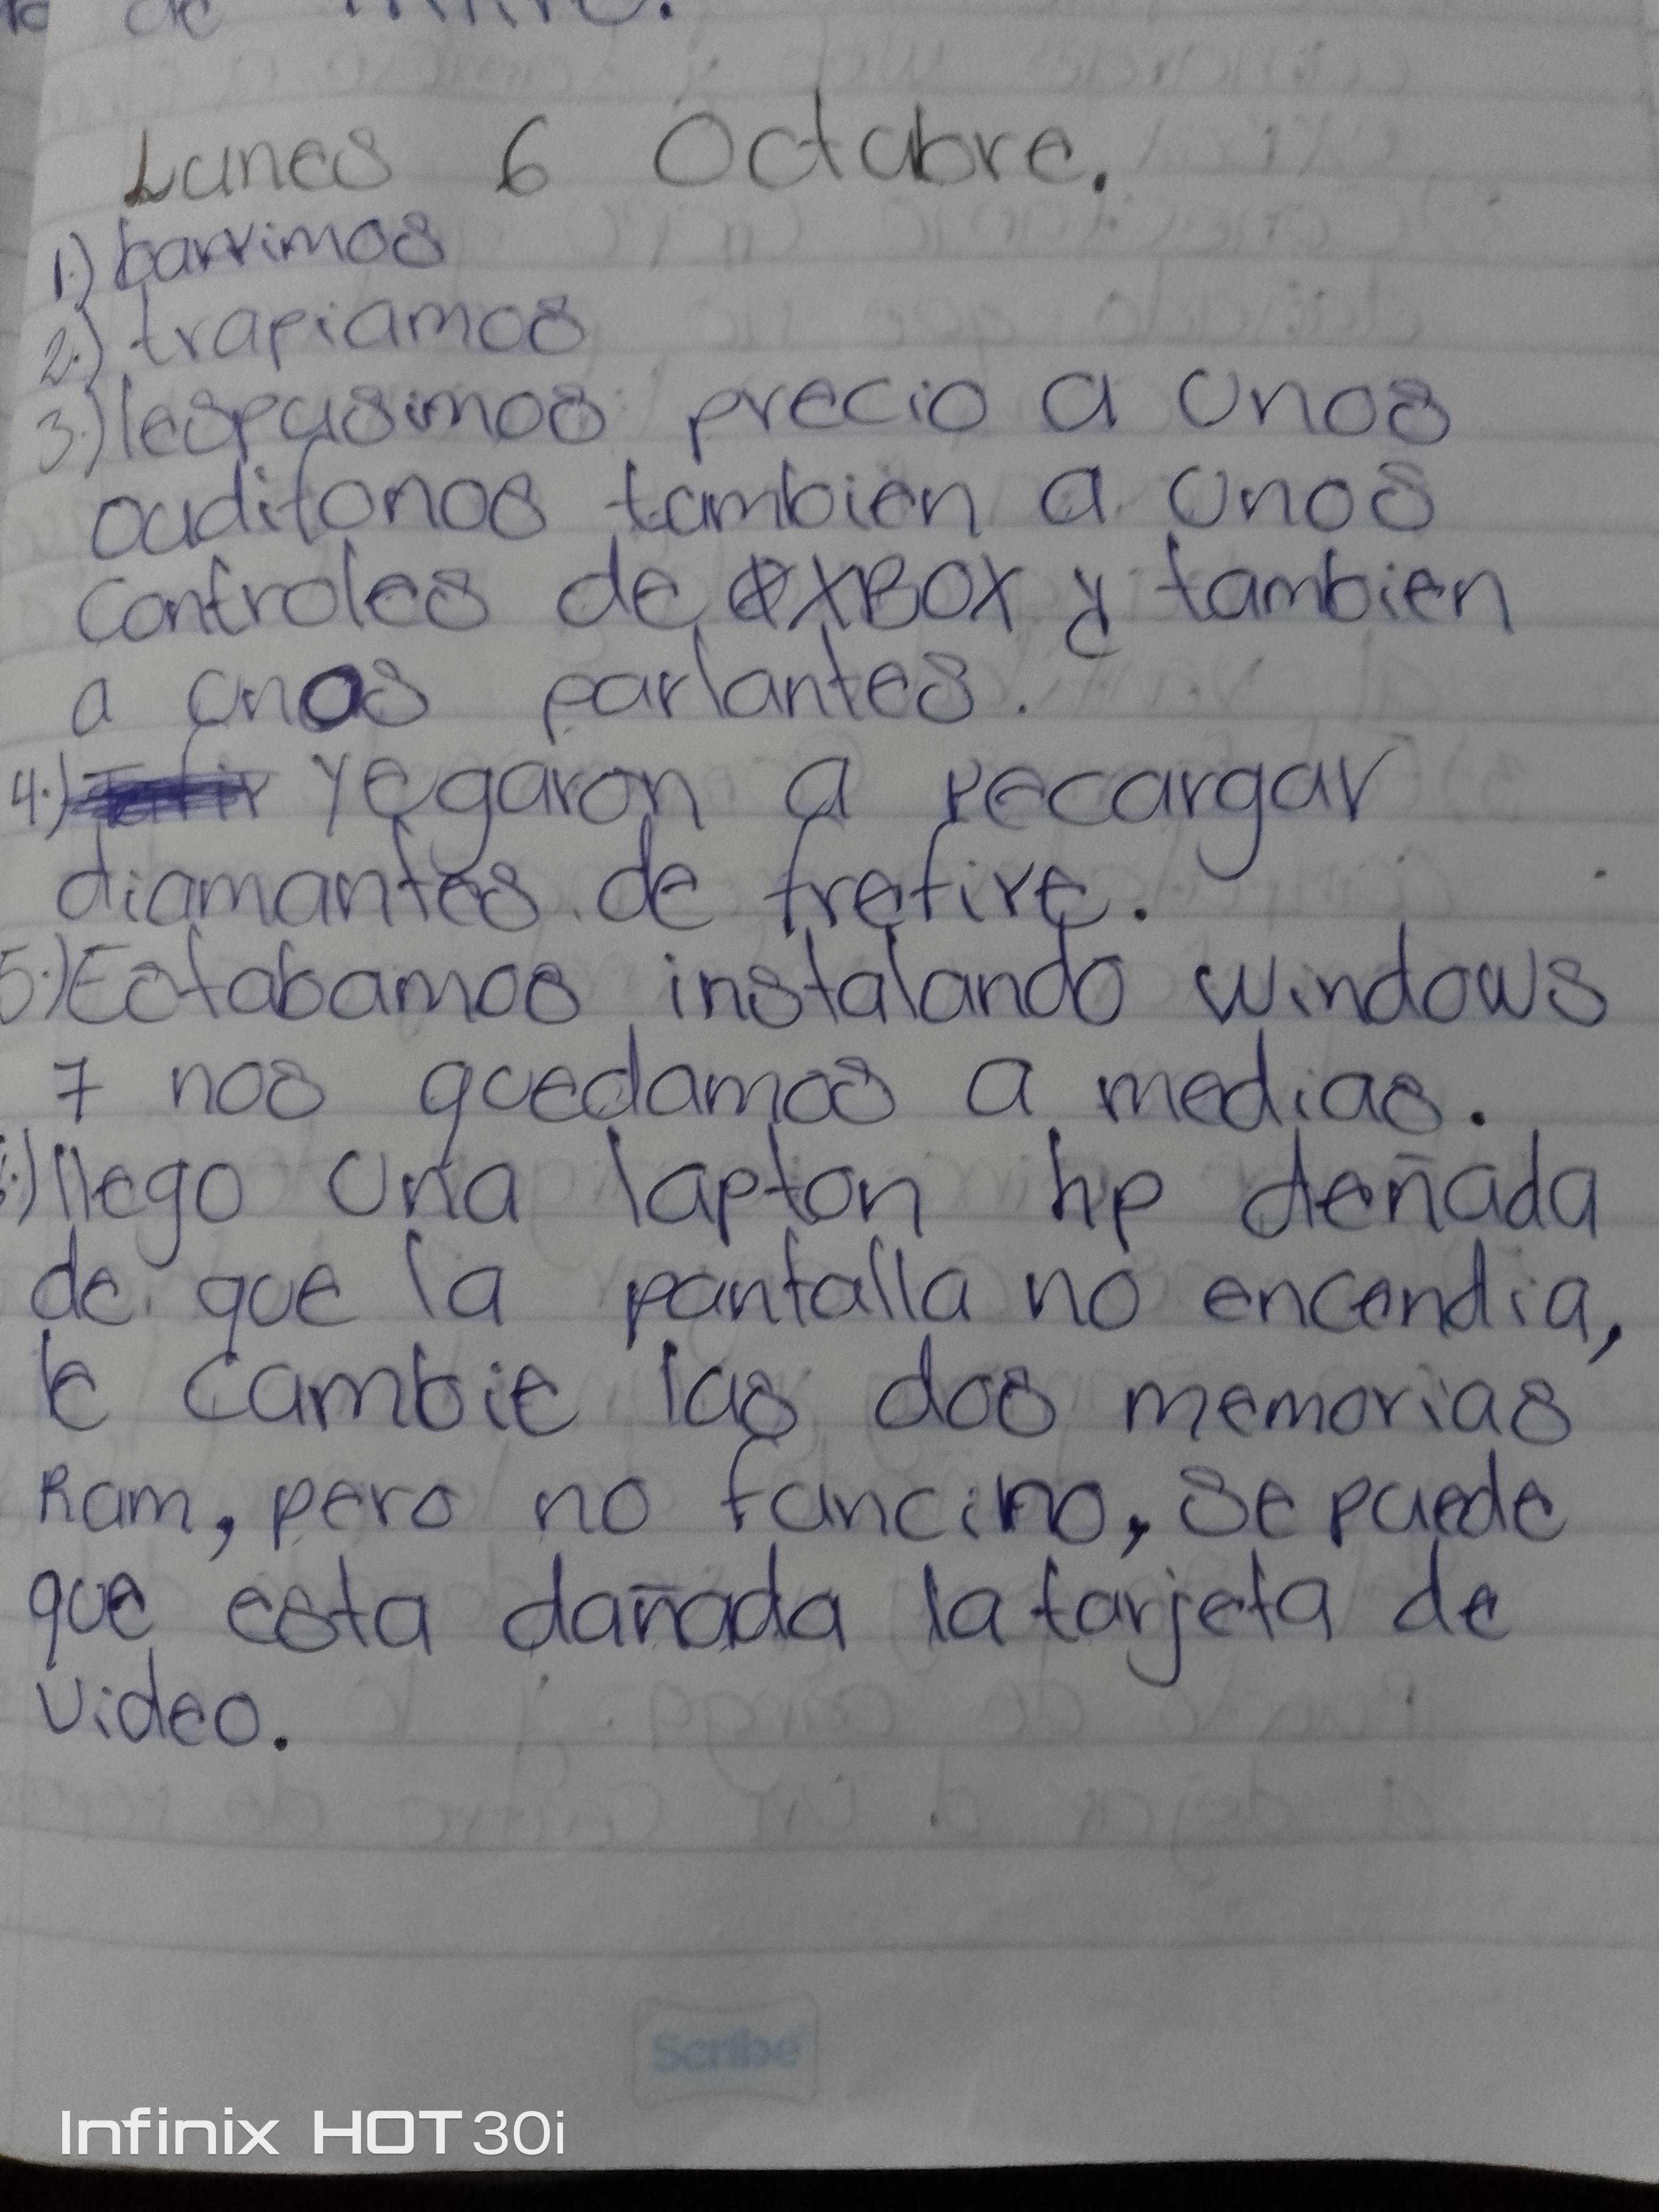 Lunes 6 Octubre.
1.) barrimos
2.) trapiamos
3.) lespusimos precio a unos
oudifonos tambien a unos
controles de XBOX y tambien
a unos parlantes.
4.) yegaron a recargar
diamantes de frefire.
5.) Estabamos instalando windows
7 nos quedamos a medias.
6.) llego una lapton hp deñada
de que la pantalla no encendia,
le cambie las dos memorias
Ram, pero no funcino, se puede
que esta dañada la tarjeta de
video.
Scribe
Infinix HOT 30i